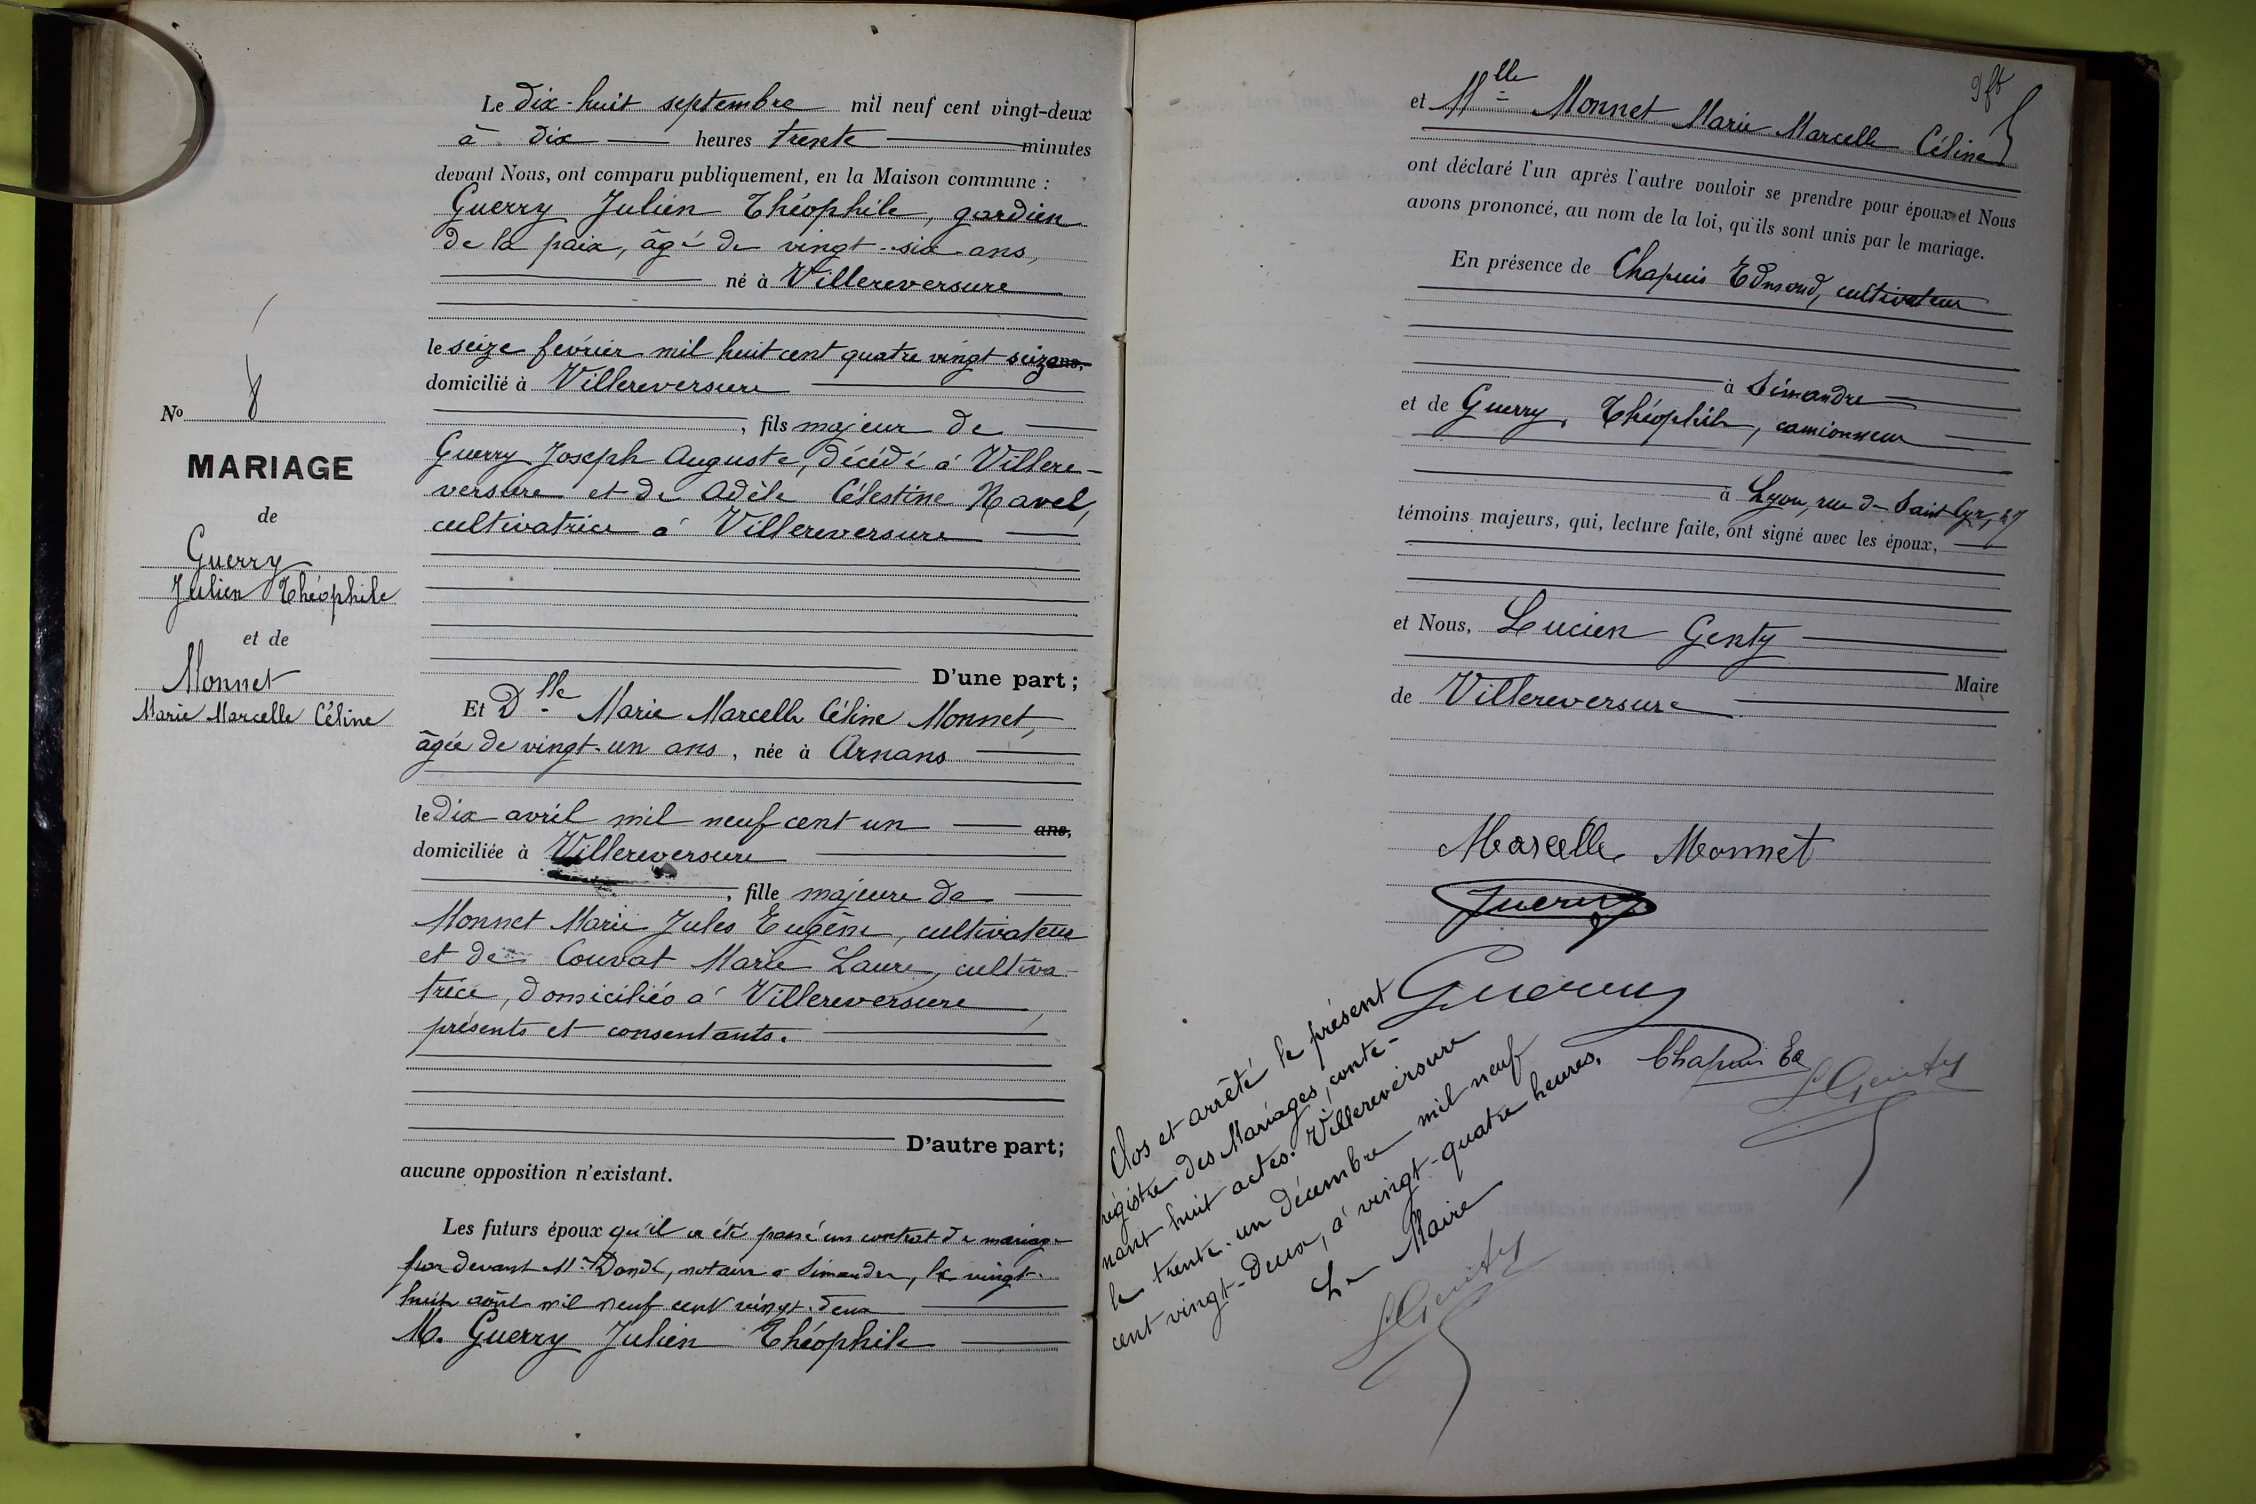 Le dix-huit septembre mil neuf cent vingt-deux
à dix heures trente minutes
devant Nous, ont comparu publiquement, en la Maison commune :
Guerry Julien Théophile, gardien
de la paix, âgé de vingt-six ans,
né à Villereversure
le seize février mil huit cent quatre vingt seize ans,
domicilié à Villereversure
, fils majeur de
Guerry Joseph Auguste, décédé à Villere-
versure et de Adèle Célestine Ravel,
cultivatrice à Villereversure
D'une part ;
No 8
MARIAGE
de
Guerry
Julien Théophile
et de
Monnet
Marie Marcelle Céline
Et Dlle Marie Marcelle Céline Monnet,
âgée de vingt-un ans, née à Arnans
le dix avril mil neuf cent un ans,
domiciliée à Villereversure
, fille majeure de
Monnet Marie Jules Eugène, cultivateur
et de Couvat Marie Laure, cultiva-
trice, domiciliés à Villereversure,
présents et consentants.
D'autre part ;
aucune opposition n'existant.
Les futurs époux qu'il a été passé un contrat de mariage
par devant Me, notaire à Simandre, le vingt-
huit août mil neuf cent vingt-deux
M. Guerry Julien Théophile
et Mlle Monnet Marie Marcelle Céline
ont déclaré l'un après l'autre vouloir se prendre pour époux et Nous
avons prononcé, au nom de la loi, qu'ils sont unis par le mariage.
En présence de Chapuis Edmond, cultivateur
à Simandre
et de Guerry, Théophile, camionneur
à Lyon, rue de Saint Cyr, 27
témoins majeurs, qui, lecture faite, ont signé avec les époux,
et Nous, Lucien Genty
Maire
de Villereversure
Marcelle Monnet
Guerry
Guerry
Chapuis Ed
L Genty
Clos et arrêté le présent
régistre des Mariages, conte-
nant huit actes. Villereversure
le trente-un décembre mil neuf
cent vingt-deux, à vingt-quatre heures.
Le Maire
L Genty